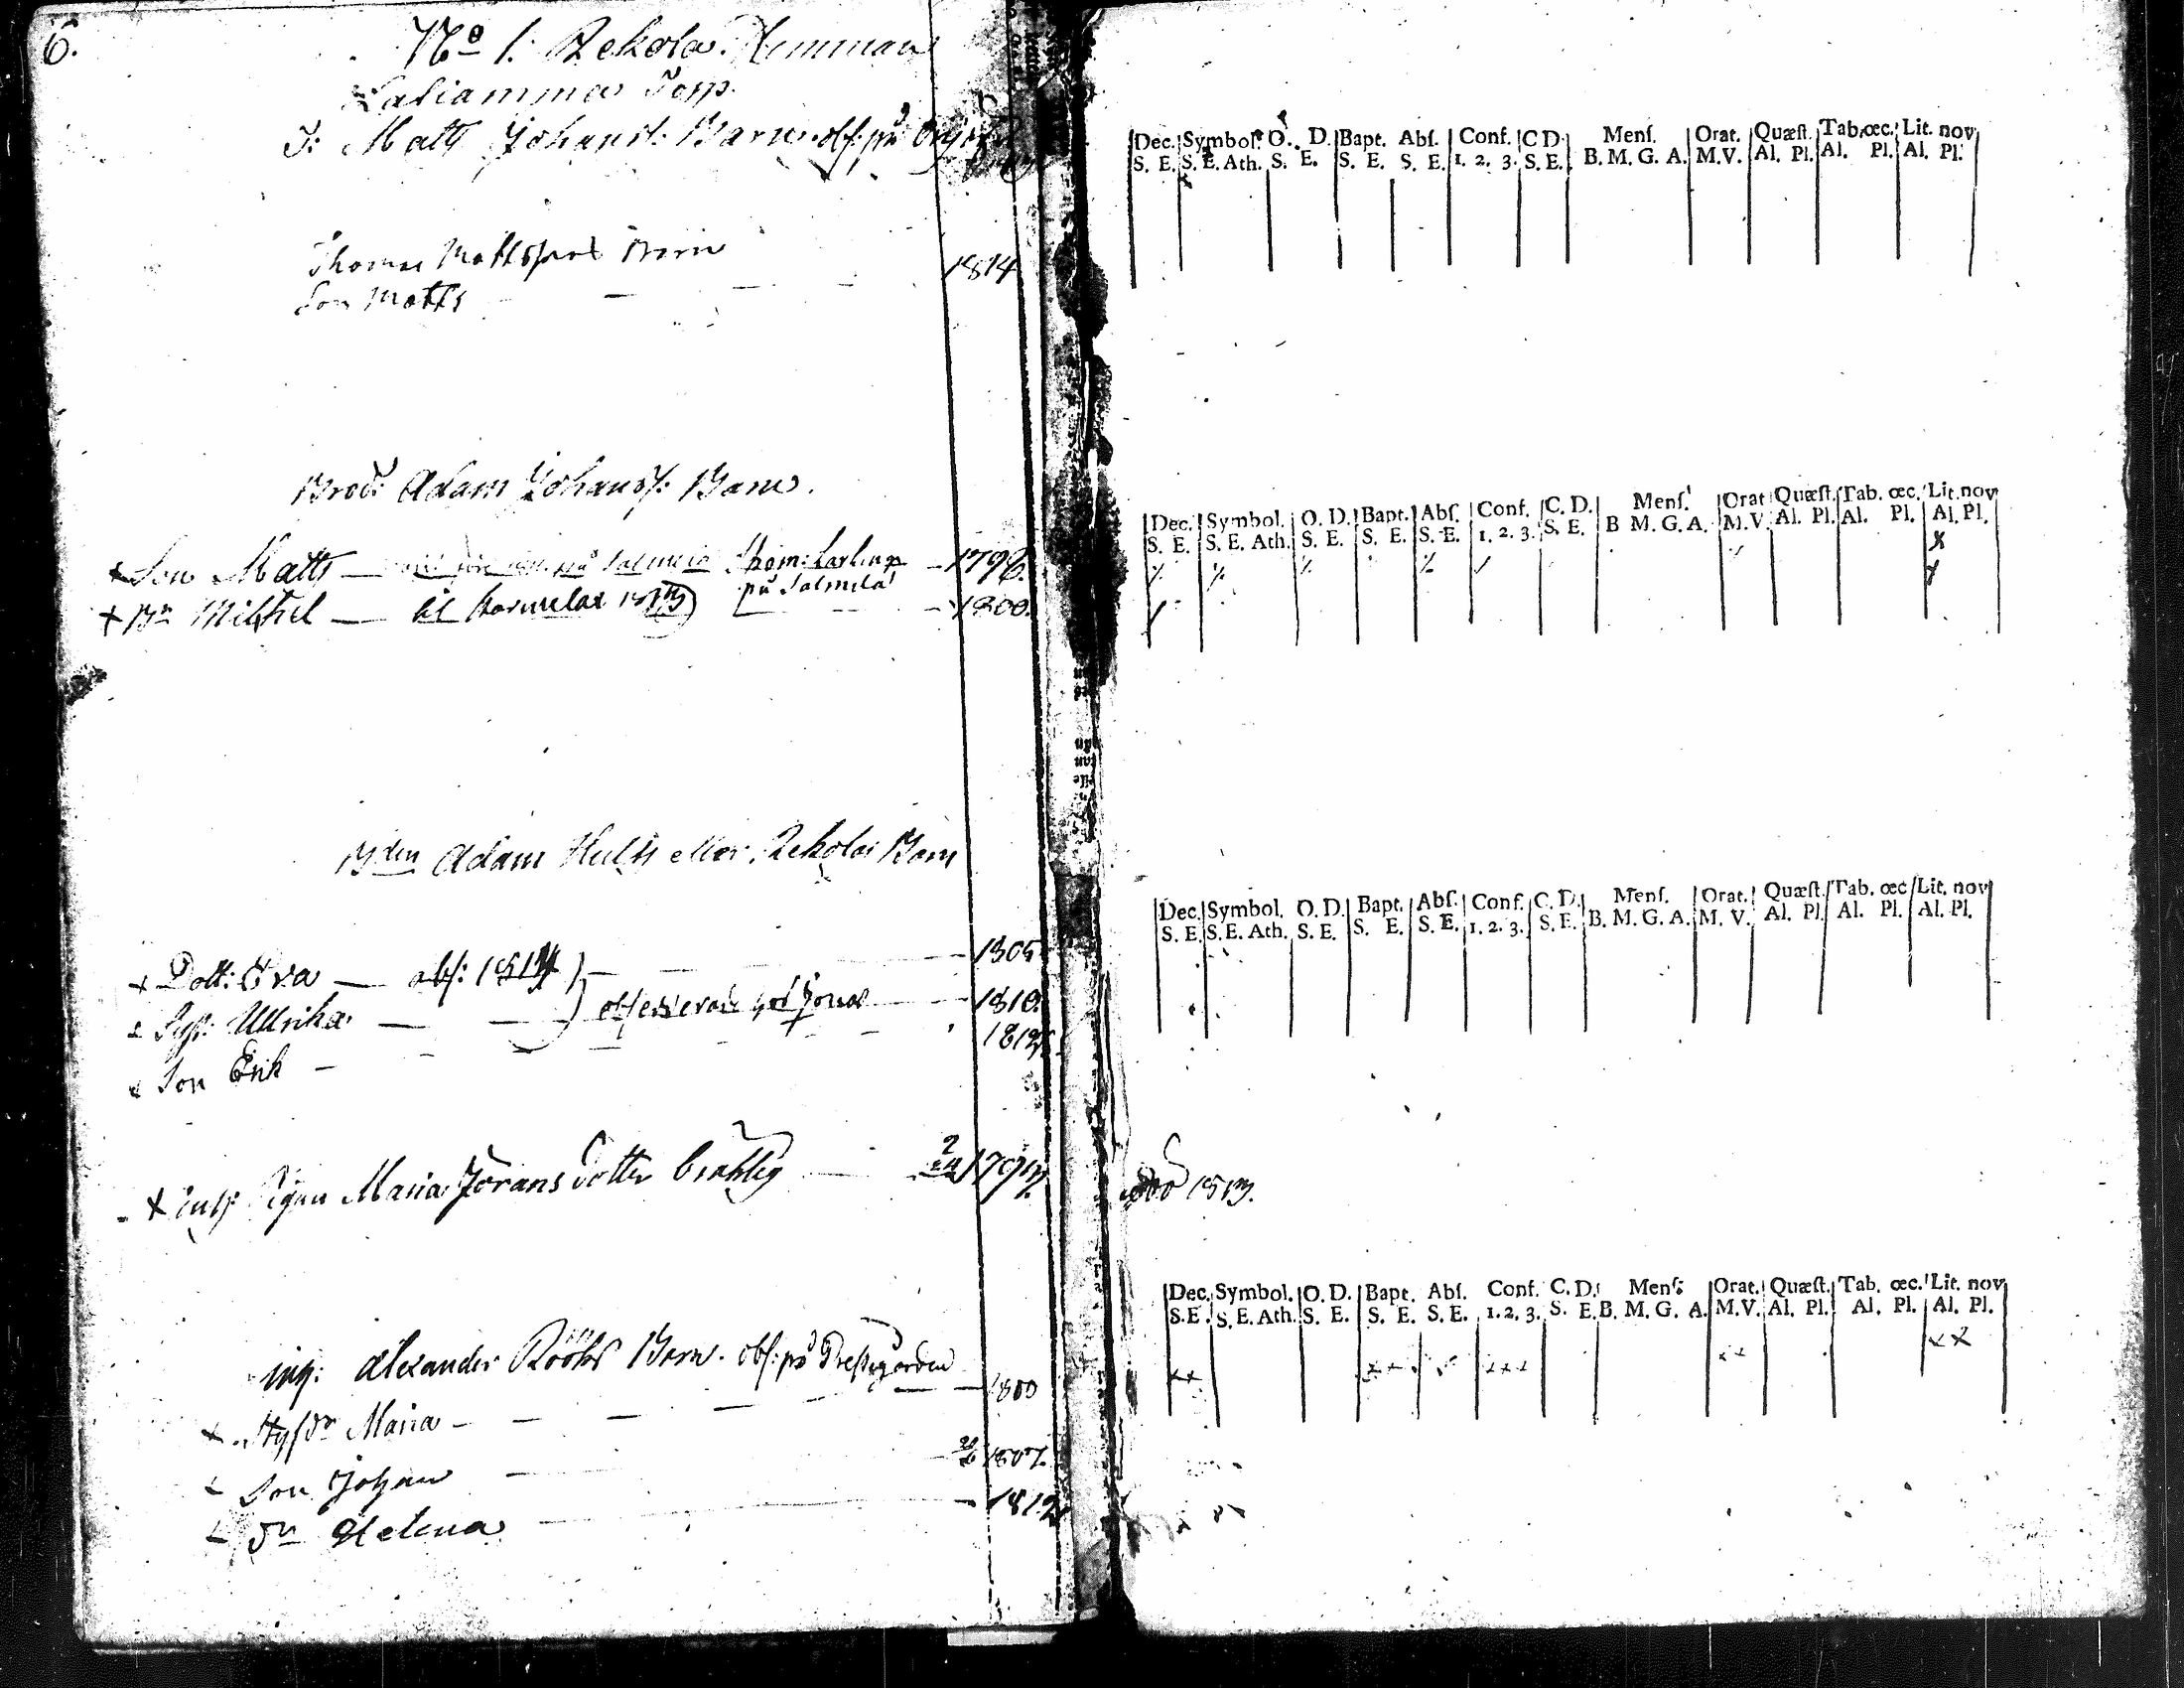 6.
No 1. Rekola Hemman
Laliamma Torp.
T: Matts Johanss: Barn. obs: på
Thomas Mattssons Barn
Son Matts — — — 1814
Brod: Adam Johanss: Barn.
+ Son Matts — på Salmela Thom: Karling 1796.
på Salmela
+ Bn Michel — til Karmelax 1800.
Bden Adam Hults eller Rekolas Barn
+ Dott: Eva — obs: 1814 — 1805
+ Sys: Ullrika — — obs 1810.
+ Son Erik — 1812
+ Inhs Pigan Maria Jörans dotter 1797.
1813.
inh: Alexander Rooths Barn. obs: på Prestegården
+ Styfdr Maria — — — 1800
+ Son Johan — 1807.
+ Dr Helena — 1812
Dec. Symbol. O. D. Bapt. Abſ. Conf. C D. Menſ. Orat. Quæſt. Tab. œc. Lit. nov
S. E. S. E. Ath. S. E. S. E. S. E. 1. 2. 3. S. E. B. M. G. A. M. V. Al. Pl. Al. Pl. Al. Pl.
Dec. Symbol. O. D. Bapt. Abſ. Conf. C. D. Menſ. Orat Quæſt. Tab. œc. Lit. nov
S. E. S. E. Ath. S. E. S. E. S. E. 1. 2. 3. S. E. B M. G. A. M. V. Al. Pl. Al. Pl. Al. Pl.
Dec. Symbol. O. D. Bapt. Abſ. Conf. C. D. Menſ. Orat. Quæſt. Tab. œc Lit. nov
S. E. S. E. Ath. S. E. S. E. S. E. 1. 2. 3. S. E. B. M. G. A. M. V. Al. Pl. Al. Pl. Al. Pl.
Dec. Symbol. O. D. Bapt. Abſ. Conf. C. D. Menſ. Orat. Quæſt. Tab. œc. Lit. nov
S. E. S. E. Ath. S. E. S. E. S. E. 1. 2. 3. S. E. B. M. G. A. M. V. Al. Pl. Al. Pl. Al. Pl.